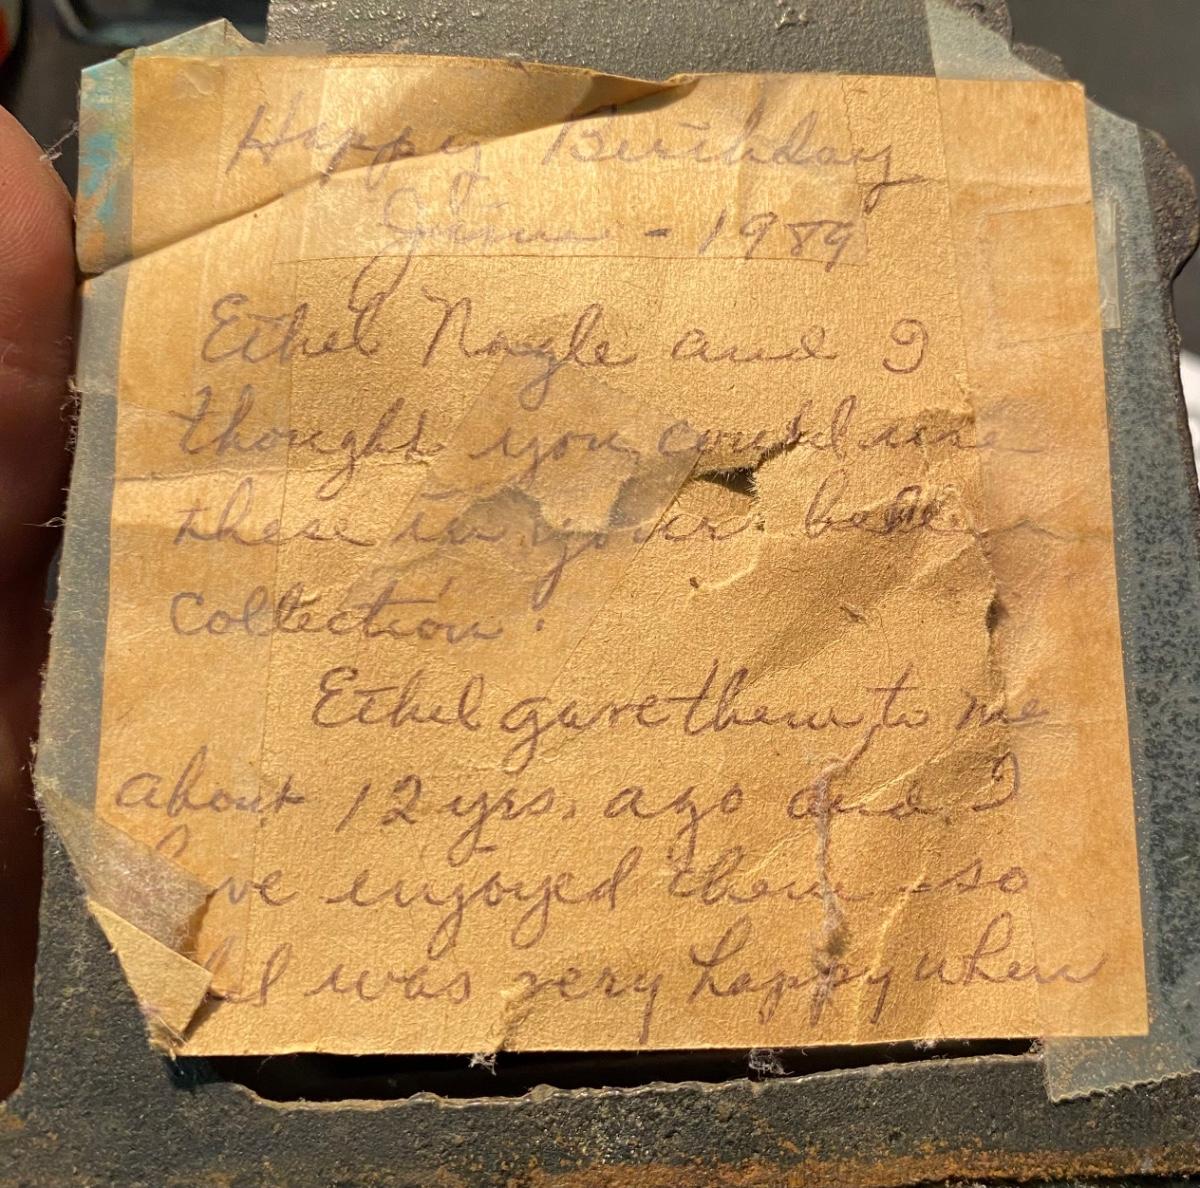 Happy Birthday
- 1989
Ethel Nagle and I
thought you could use
these in your
collection.
Ethel gave them to me
about 12 yrs. ago and I
ve enjoyed them - so
was very happy when